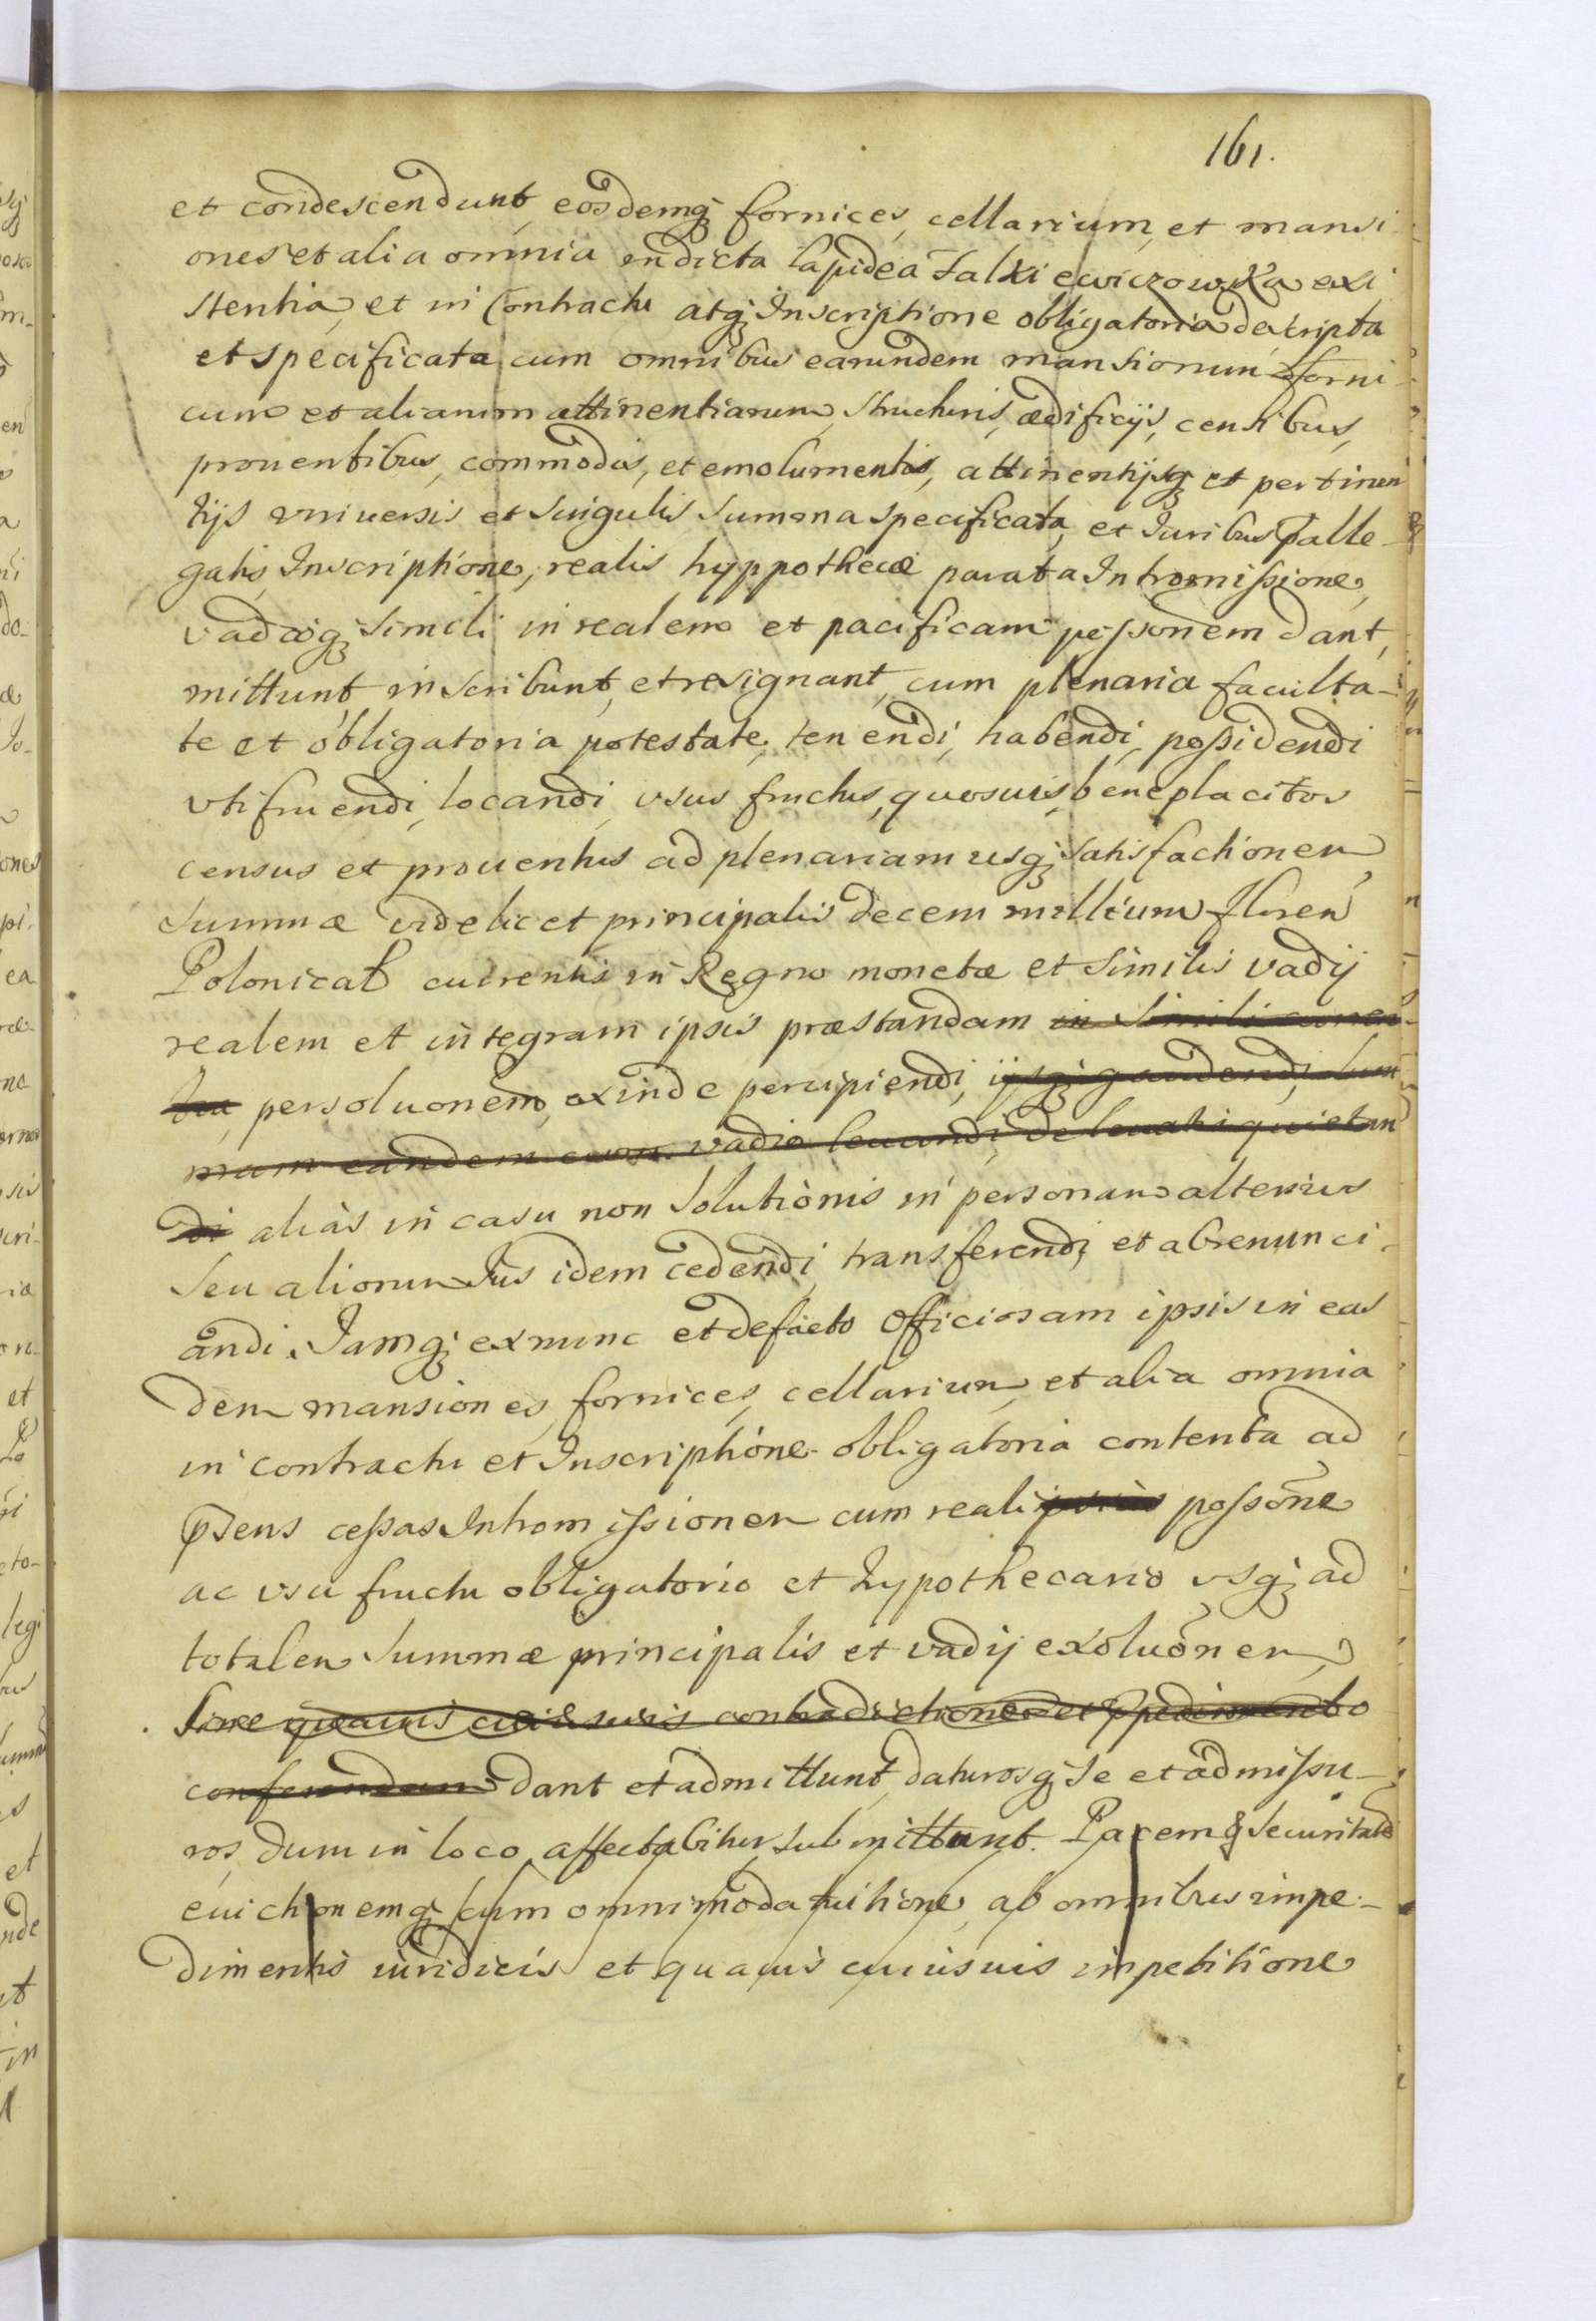 161.
et condescendunt, eosdemq; fornices, cellarium, et mansi-
ones et alia omnia in dicta lapidea Falkiewiczowska exi
stentia, et in Contractu atq; Inscriptione obligatoria descripta
et specificata, cum omnibus earundem mansionum, forni-
cum et aliarum attinentiarum, structuris, ædificijs, censibus,
prouentibus, commodis, et emolumentis, attinentijsq; et pertinen
tijs vniuersis et singulis summa specificata, et Iuribus palle-
gatis, Inscriptione, realis hyppothecæ parata Intromissione,
vadioq; simili in realem et pacificam possonem dant,
mittunt, inscribunt, et resignant, cum plenaria faculta-
te et obligatoria potestate, tenendi, habendi, possidendi
vtifruendi, locandi, vsus fructus, quosuis, beneplacitos
census et prouentus ad plenariam usq; satisfactionem
summæ videlicet principalis decem millium floren
Polonical currentis in Regno monetæ et similis vadij
realem et integram ipsis præstandam in simili
persoluonem, exinde percipiendi, ijsq; gaudendi, sum
mam eandem cum vadio leuandi, de leuatis quietan
di aliàs in casu non solutionis in personam alterius
seu aliorum Ius idem cedendi, transferendi, et abrenunci-
andi. Iamq; ex nunc et defacto Officiosam ipsis in eas
dem mansiones, fornices, cellarium, et alia omnia
in contractu et Inscriptione obligatoria contenta ad
pñs cessas Intromissionem cum reali possone
ac vsu fructu obligatorio et hypothecario vsq; ad
totalem summæ principalis et vadij exoluonem,
sine quauis cuiusuis contradictione et impedimento
conferendam dant et admittunt, daturosq; se et admissu-
ros, dum in loco affectabitur, submittunt. Pacem & securitatē
euictionemq; cum omnimoda tuitione, ab omnibus impe-
dimentis iuridicis et quauis cuiusuis impetitione